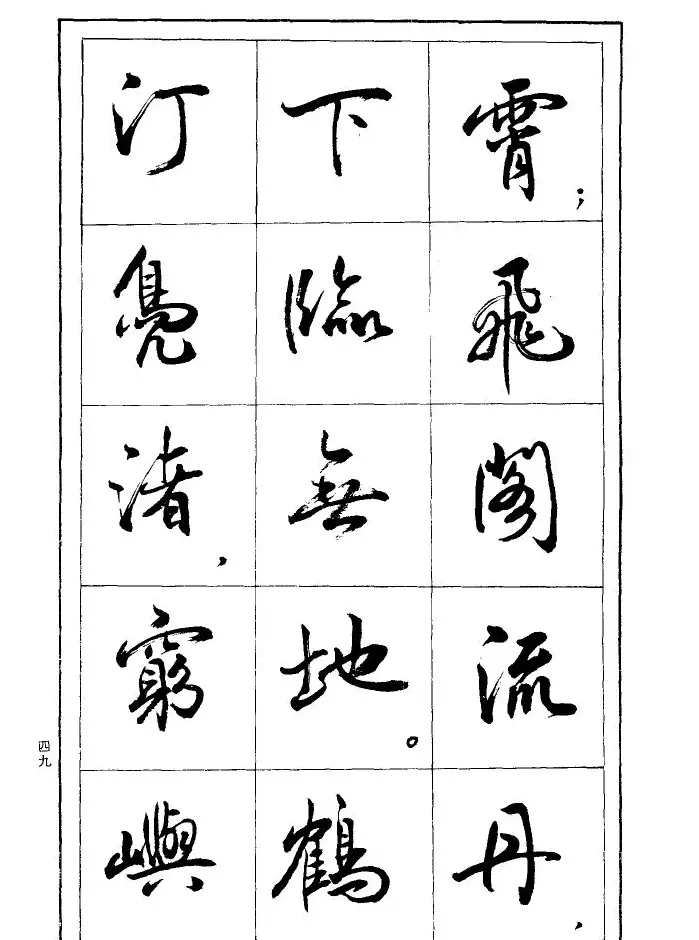 霄；飛閣流丹，
下臨無地。鶴
汀鳧渚，窮嶼
四九